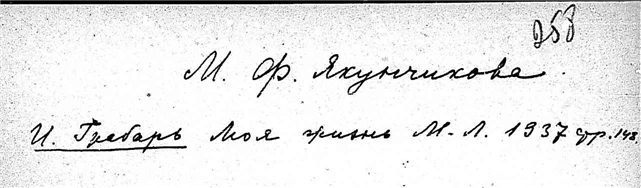 258
М. Ф. Якунчикова.
И. Грабарь Моя жизнь М-Л. 1937 стр. 148.